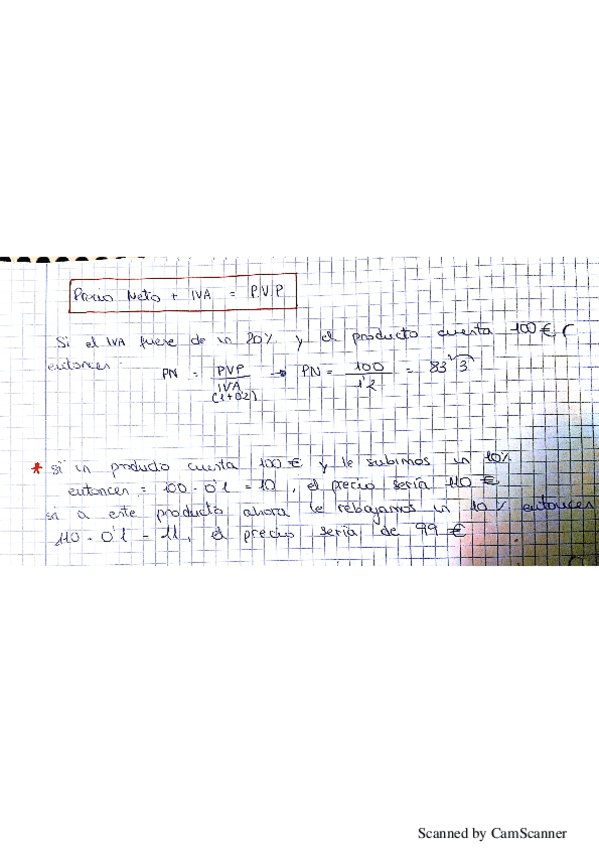 Precio Neto + IVA = P.V.P
Si el IVA fuese de un 20% y el producto cuesta 100 € (
entonces:
PN = PVP / IVA (1+0'2) → PN = 100 / 1'2 = 83'3
* si un producto cuesta 100 € y le subimos un 10%
entonces = 100 · 0'1 = 10, el precio sería 110 €
si a este producto ahora le rebajamos un 10% entonces
110 · 0'1 = 11, el precio sería de 99 €
Scanned by CamScanner